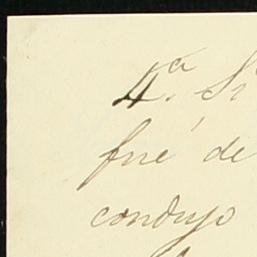 4.ª Si
fué de
condujo